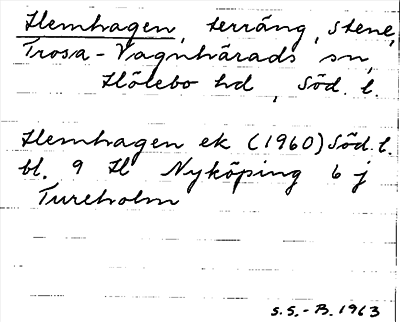 Hemhagen, terräng, Stene,
Trosa-Vagnhärads sn,
Hölebo hd, Söd. l.
Hemhagen ek (1960) Söd. l.
bl. 9 H Nyköping 6 j
Tureholm
S.S.-B. 1963